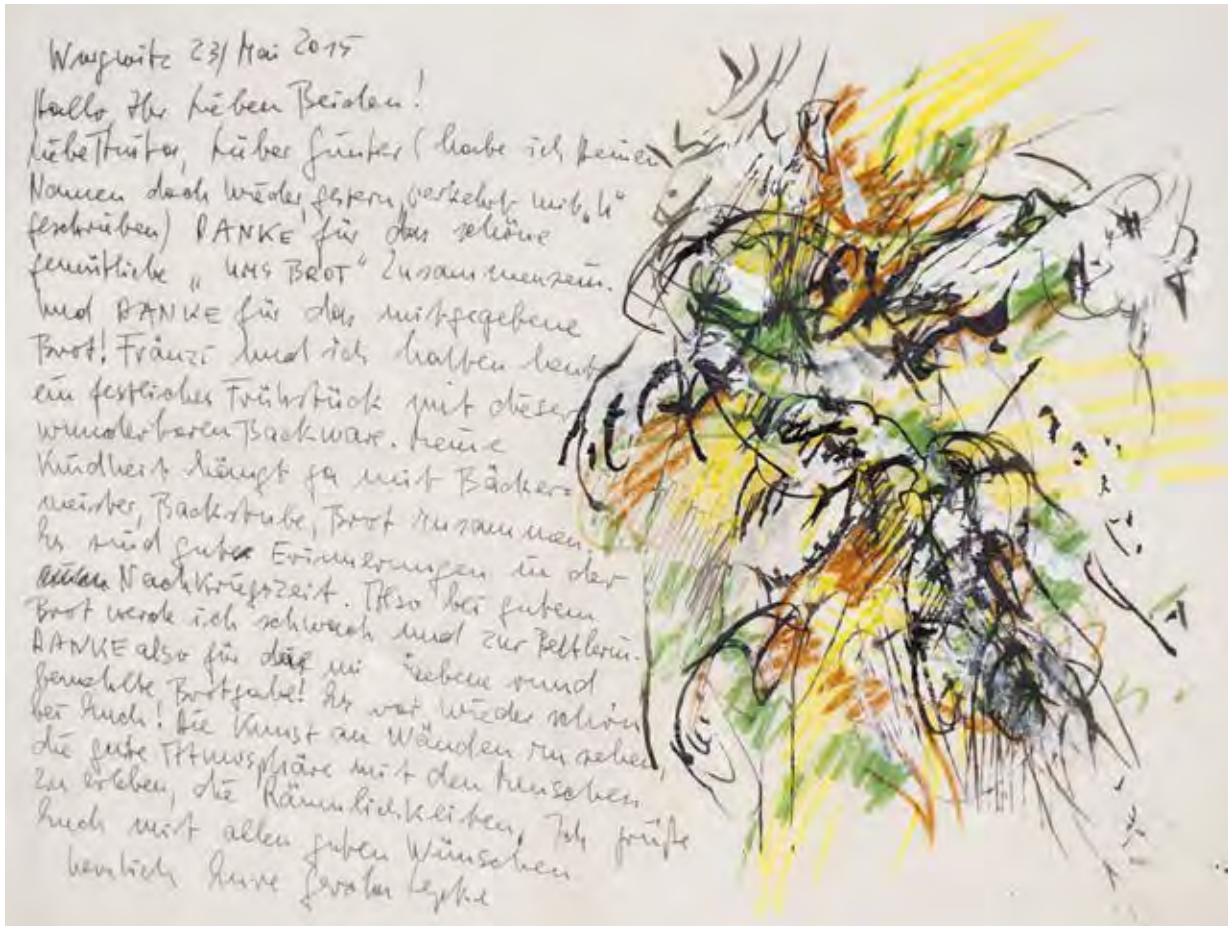 Wurgwitz 23/Mai 2015
Hallo, Ihr Lieben Beiden!
Lieber Günter (habe ich Deinen
Namen doch wieder gestern verkehrt mit „h“
geschrieben) DANKE für das schöne
gemütliche „UMS BROT“ Zusammensein.
Und DANKE für das mitgegebene
Brot! Fränzi und ich hatten heut
ein festliches Frühstück mit dieser
wunderbaren Backware. Meine
Kindheit hängt ja mit Bäcker=
meister, Backstube, Brot zusammen.
Es sind gute Erinnerungen in der
Nachkriegszeit. Also bei gutem
Brot werde ich schwach und zur Bettlerin.
DANKE also für die rund
Brotgabe! Es war wieder schön
bei Euch! Die Kunst an Wänden zu sehen,
die gute Atmosphäre mit den Menschen
zu erleben, die Räumlichkeiten. Ich grüße
Euch mit allen guten Wünschen
herzlich Eure Gerda Lepke